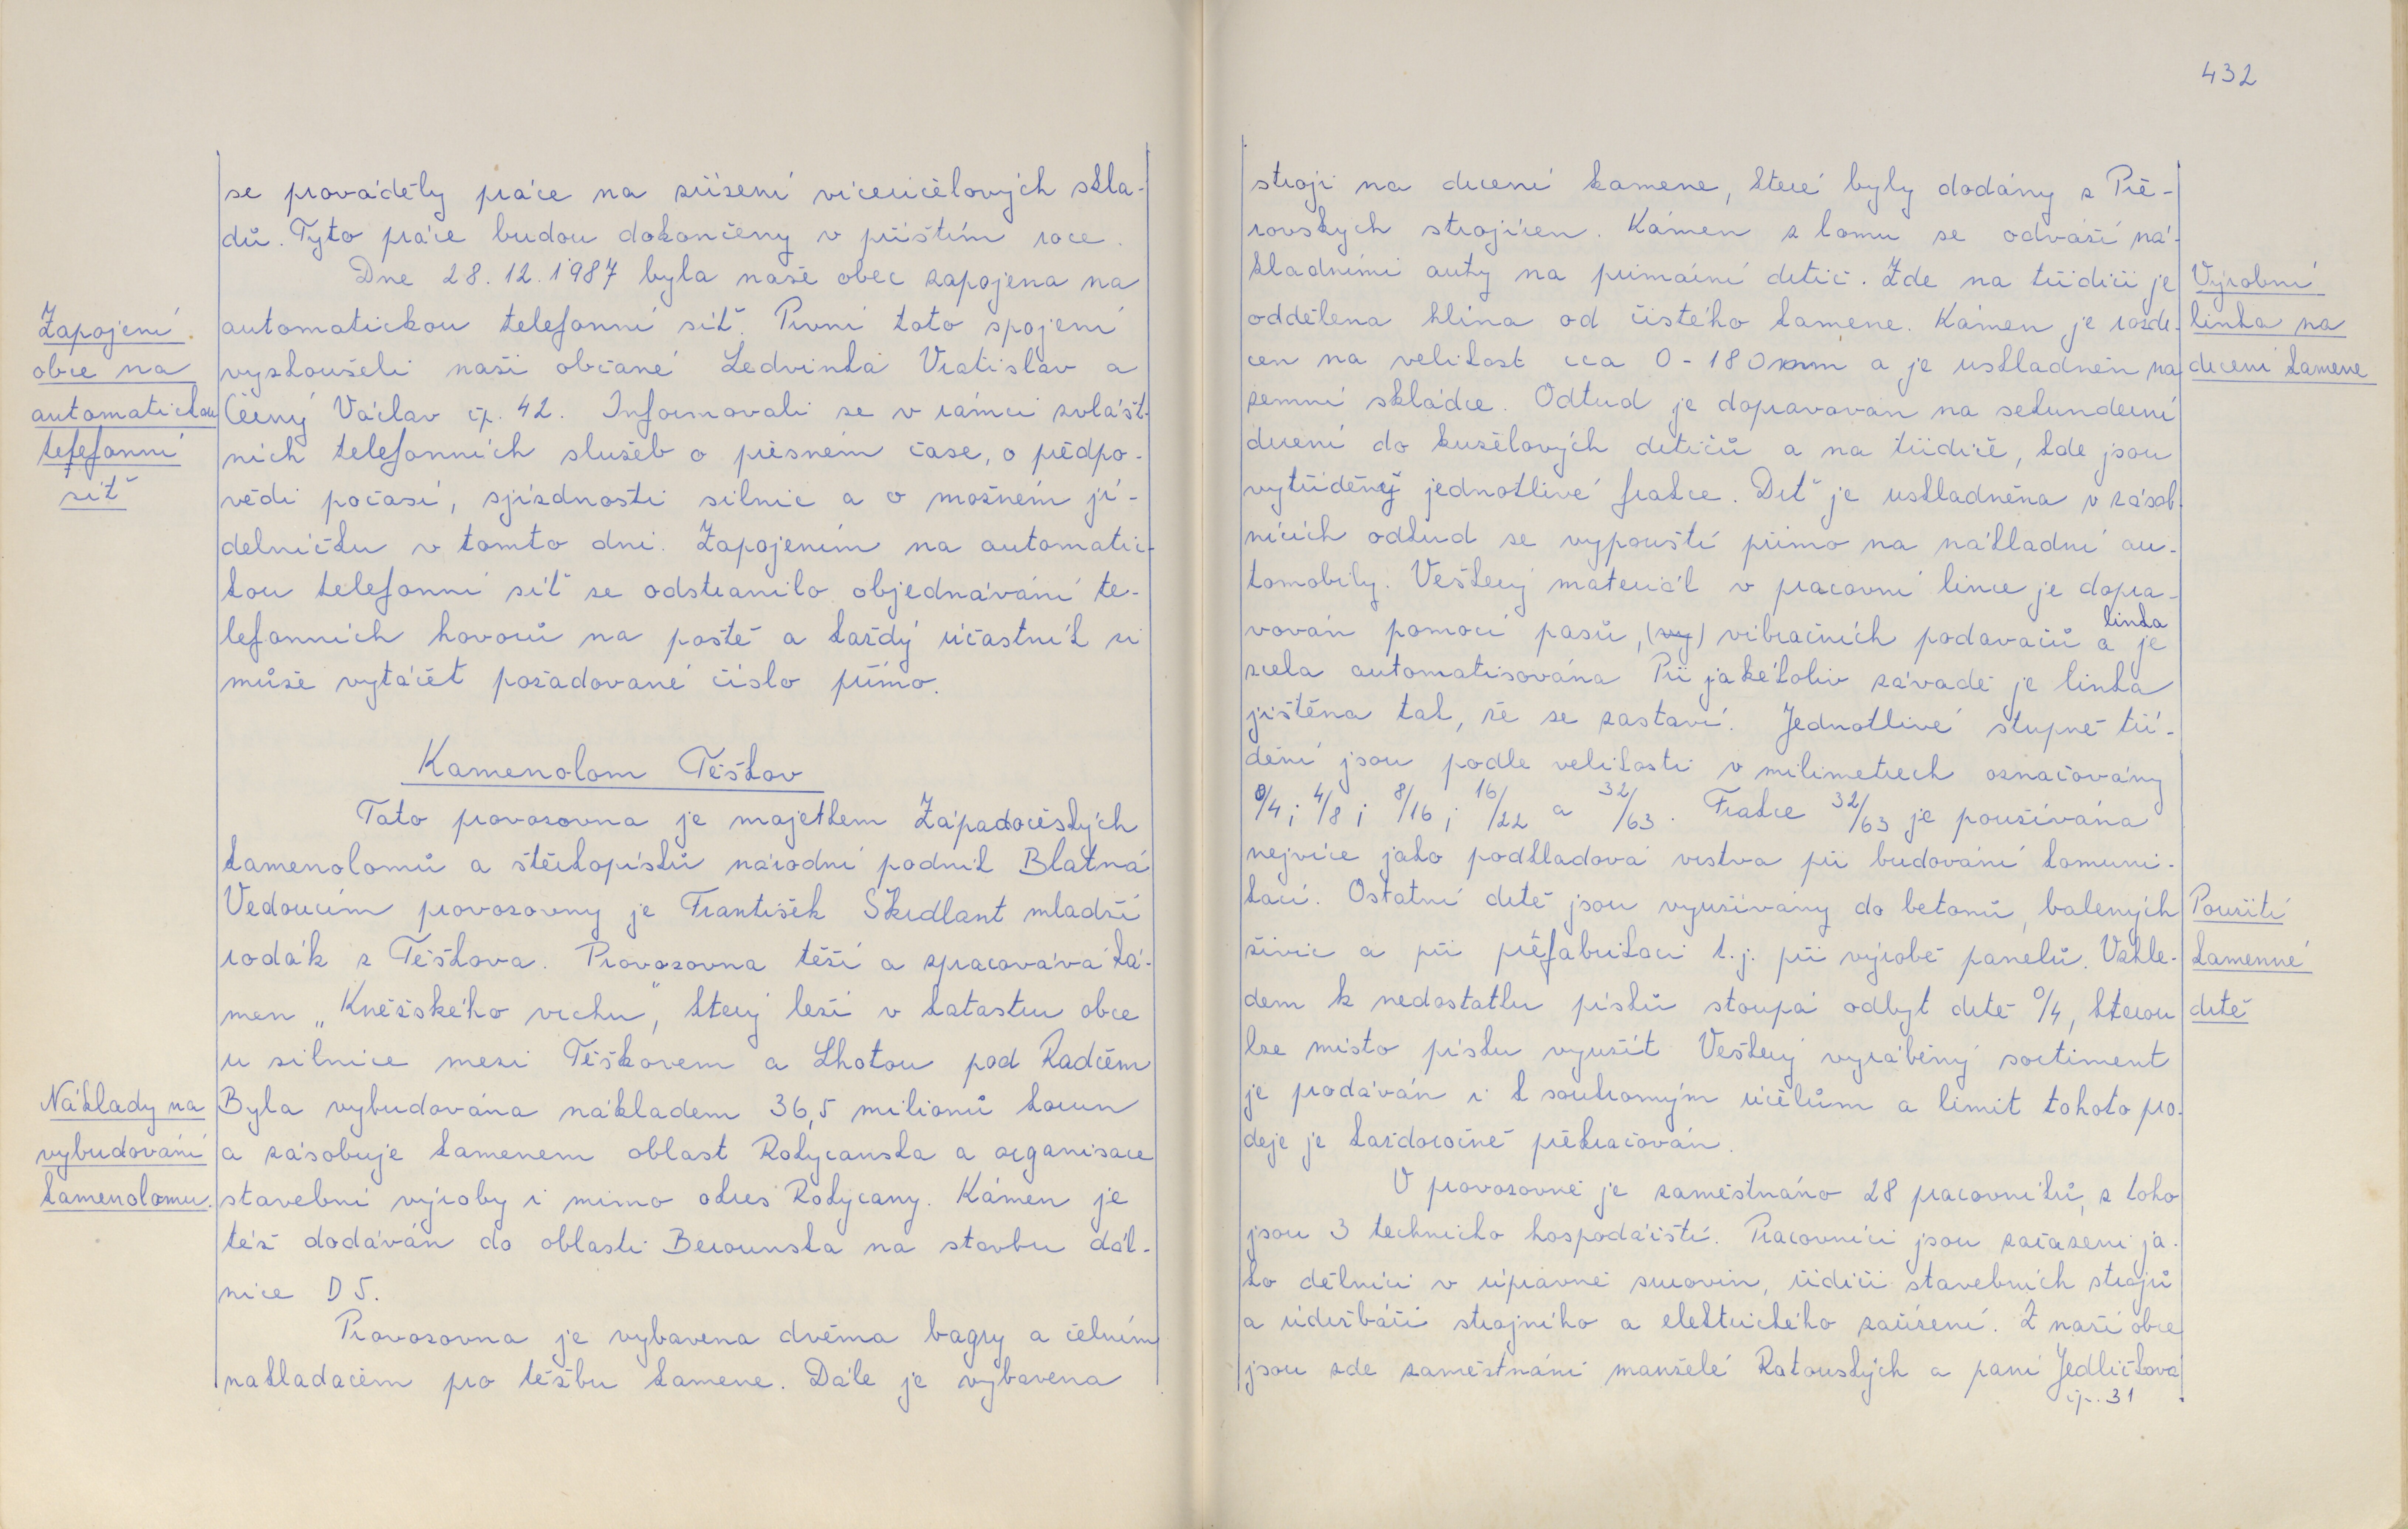 se prováděly práce na zřízení víceúčelových skla-
dů. Tyto práce budou dokončeny v příštím roce.
Dne 28.12.1987 byla naše obec zapojena na
Zapojení
obce na
automatickou
telefonní
síť
automatickou telefonní síť. První toto spojení
vyzkoušeli naši občané Ledvinka Vratislav a
Černý Václav čp. 42. Informovali se v rámci zvlášt-
ních telefonních služeb o přesném čase, o předpo-
vědi počasí, sjízdnosti silnic a o možném jí-
delníčku v tomto dni. Zapojením na automatic-
kou telefonní síť se odstranilo objednávání te-
lefonních hovorů na poště a každý účastník si
může vytáčet požadované číslo přímo.
Kamenolom Těškov
Tato provozovna je majetkem Západočeských
kamenolomů a štěrkopísků národní podnik Blatná
Vedoucím provozovny je František Škudlant mladší
rodák z Těškova. Provozovna těží a zpracovává ká-
men „Kněžského vrchu", který leží v katastru obce
u silnice mezi Těškovem a Lhotou pod Radčem
Náklady na
vybudování
kamenolomu.
Byla vybudována nákladem 36,5 milionů korun
a zásobuje kamenem oblast Rokycanska a organisace
stavební výroby i mimo okres Rokycany. Kámen je
též dodáván do oblasti Berounska na stavbu dál-
nice D5.
Provozovna je vybavena dvěma bagry a čelním
nakladačem pro těžbu kamene. Dále je vybavena
432
stroji na drcení kamene, které byly dodány z Pře-
rovských strojíren. Kámen z lomu se odváží ná-
kladními auty na primární drtič. Zde na třídiči je
oddělena hlína od čistého kamene. Kámen je rozdr-
cen na velikost cca 0-180mm a je uskladněn na
zemní skládce. Odtud je dopravován na sekunderní
drcení do kuželových drtičů a na třídiče, kde jsou
vytříděny jednotlivé frakce. Drť je uskladněna v zásob-
nících odkud se vypouští přímo na nákladní au-
tomobily. Veškerý materiál v pracovní lince je dopra-
vován pomocí pasů, (vy) vibračních podavačů a linka je
zcela automatisována Při jakékoliv závadě je linka
jištěna tak, že se zastaví. Jednotlivé stupně tří-
dění jsou podle velikosti v milimetrech označovány
0/4; 4/8; 8/16; 16/22 a 32/63. Frakce 32/63 je používána
nejvíce jako podkladová vrstva při budování komuni-
kací. Ostatní drtě jsou využívány do betonů, balených
živic a při préfabrikaci t.j. při výrobě panelů. Vzhle-
dem k nedostatku písků stoupá odbyt drtě 0/4, kterou
lze místo písku využít Veškerý vyráběný sortiment
je prodáván i k soukromým účelům a limit tohoto pro-
deje je každoročně překračován.
V provozovně je zaměstnáno 28 pracovníků, z toho
jsou 3 technicko hospodářští. Pracovníci jsou zařazeni ja-
ko dělníci v úpravně surovin, řidiči stavebních strojů
a údržbáři strojního a elektrického zařízení. Z naší obce
jsou zde zaměstnáni manželé Ratouských a paní Jedličková
čp. 31
Výrobní
linka na
drcení kamene
Použití
kamenné
drtě